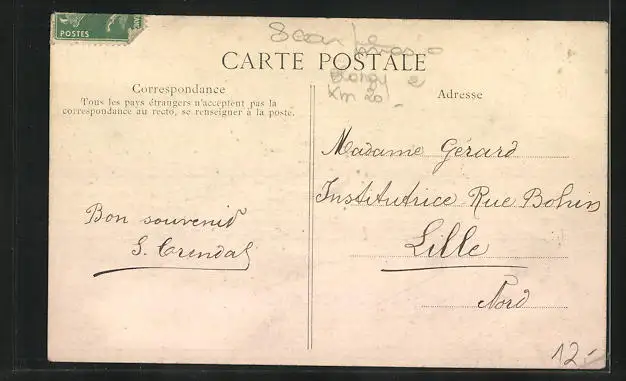 POSTES
CARTE POSTALE
Correspondance
Tous les pays étrangers n'acceptent pas la
correspondance au recto, se renseigner à la poste.
Adresse
Madame Gérard
Institutrice Rue Bohin
Lille
Nord
Bon souvenir
S.
12.-